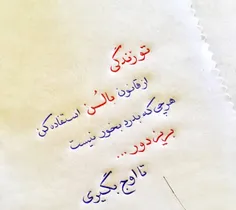 تو زندگی
از قانون بالُن استفاده کن
هرچی که بدرد بخور نیست
بریز دور ...
تا اوج بگیری